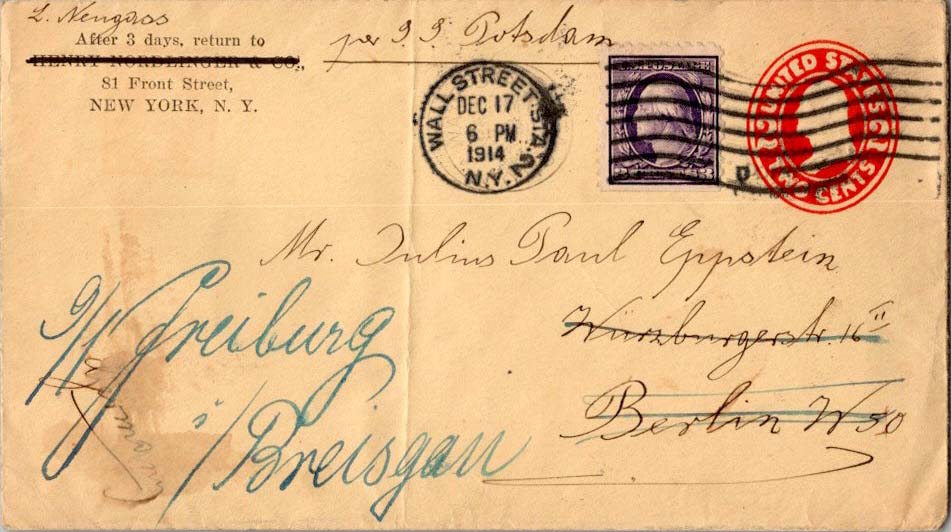 L. Neugass
After 3 days, return to
HENRY NORDLINGER & CO.,
81 Front Street,
NEW YORK, N. Y.
per S S Potsdam
WALL STREET STA. 2
DEC 17
6 PM
1914
N.Y.
UNITED STATES
2 2
TWO CENTS
Mr. Julius Paul Eppstein
Würzburgerstr. 16 II
Berlin W 50
Freiburg
i/Breisgau